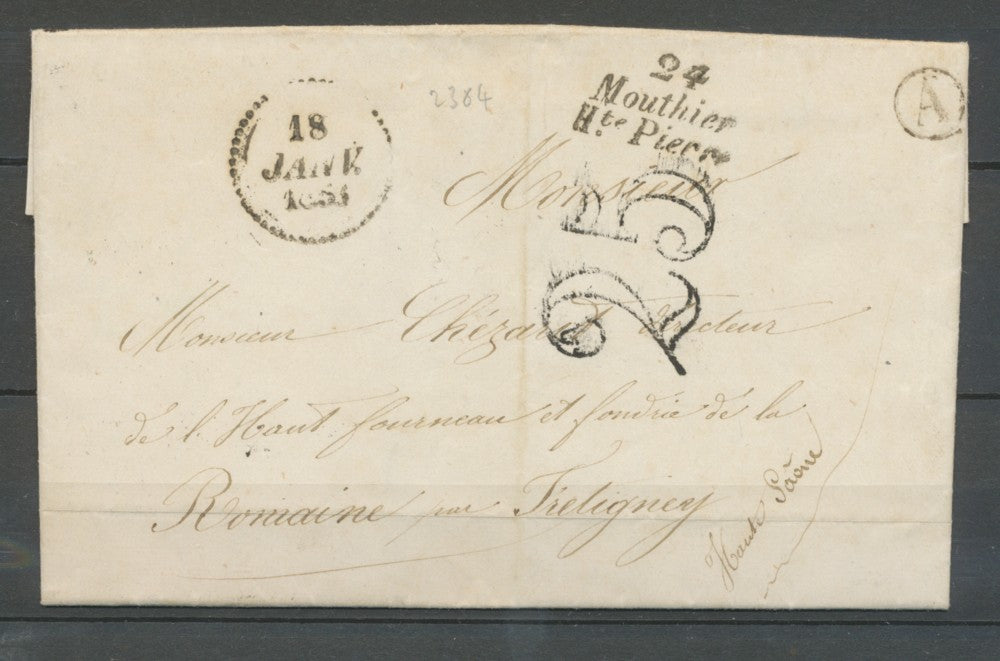 18
JANV.
1851
2384
24
Mouthier
Hte Pierre
A
25
Monsieur
Monsieur Chézaret Directeur
de l'Haut fourneau et fondrie de la
Romaine par Fretigney
Haute Saône